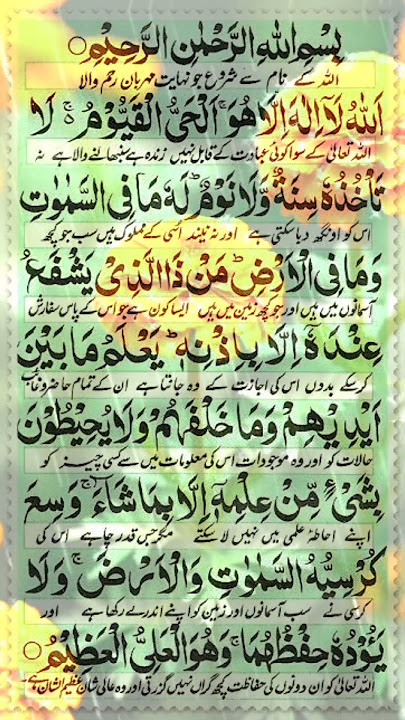 بِسْمِ اللهِ الرَّحْمٰنِ الرَّحِيْمِ ○
اللہ کے نام سے شروع جو نہایت مہربان رحم والا
اَللهُ لَاۤ اِلٰهَ اِلَّا هُوَ ۚ اَلْحَیُّ الْقَیُّوْمُ ۚ۬ لَا
اللہ تعالیٰ کے سوا کوئی عبادت کے قابل نہیں زندہ ہے سنبھالنے والا ہے نہ
تَاْخُذُهٗ سِنَةٌ وَّلَا نَوْمٌ ؕ لَهٗ مَا فِی السَّمٰوٰتِ
اس کو اونگھ دبا سکتی ہے اور نہ نیند اسی کے مملوک ہیں سب جو کچھ
وَمَا فِی الْاَرْضِ ؕ مَنْ ذَا الَّذِیْ یَشْفَعُ
آسمانوں میں ہیں اور جو کچھ زمین میں ہیں ایسا کون ہے جو اس کے پاس سفارش
عِنْدَهٗۤ اِلَّا بِاِذْنِهٖ ؕ یَعْلَمُ مَا بَیْنَ
کرسکے بدوں اس کی اجازت کے وہ جانتا ہے ان کے تمام حاضر و غائب
اَیْدِیْهِمْ وَمَا خَلْفَهُمْ ۚ وَلَا یُحِیْطُوْنَ
حالات کو اور وہ موجودات اس کی معلومات میں سے کسی چیز کو
بِشَیْءٍ مِّنْ عِلْمِهٖۤ اِلَّا بِمَا شَآءَ ۚ وَسِعَ
اپنے احاطۂ علمی میں نہیں لا سکتے مگر جس قدر چاہے اس کی
كُرْسِیُّهُ السَّمٰوٰتِ وَالْاَرْضَ ۚ وَلَا
کرسی نے سب آسمانوں اور زمین کو اپنے اندر لے رکھا ہے اور
یَـُٔوْدُهٗ حِفْظُهُمَا ۚ وَهُوَ الْعَلِیُّ الْعَظِیْمُ ○
اللہ تعالیٰ کو ان دونوں کی حفاظت کچھ گراں نہیں گزرتی اور وہ عالی شان عظیم الشان ہے۔